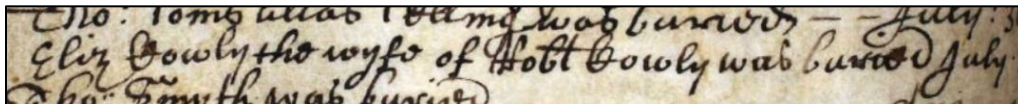 Tho: Tomb alias Telling was buried – – July: 3
Eliz Rowly the wyfe of Robt Rowly was buried July
Tho: Smyth was buried